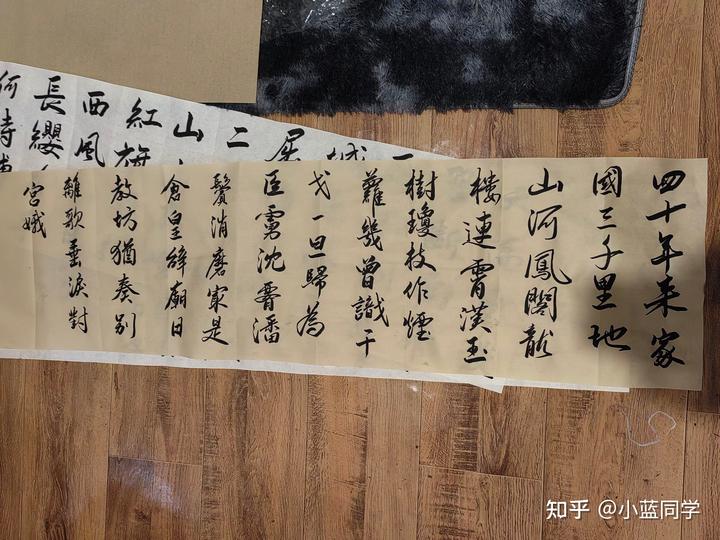 四十年来家
國三千里地
山河鳳閣龍
楼連霄漢玉
樹瓊枝作煙
蘿幾曾識干
戈一旦歸為
臣虜沈潘
鬢消磨最是
倉皇辭廟日
教坊猶奏別
離歌垂淚對
宮娥
二
山
紅旗
西風
長纓
何時縛
知乎 @小蓝同学